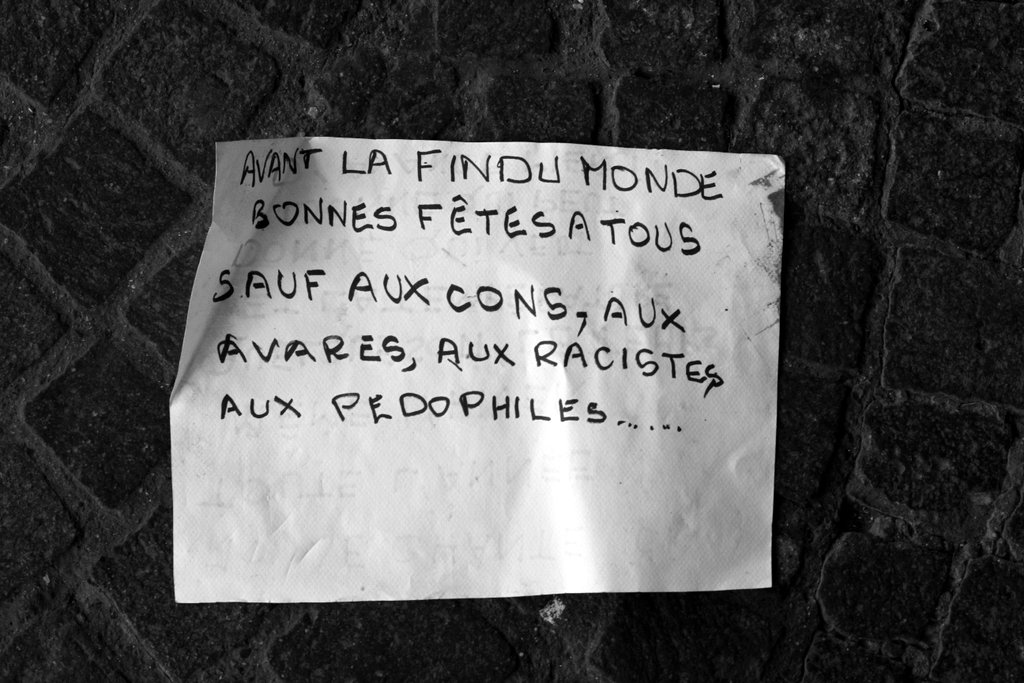 AVANT LA FIN DU MONDE
BONNES FÊTES A TOUS
SAUF AUX CONS, AUX
AVARES, AUX RACISTES,
AUX PEDOPHILES......